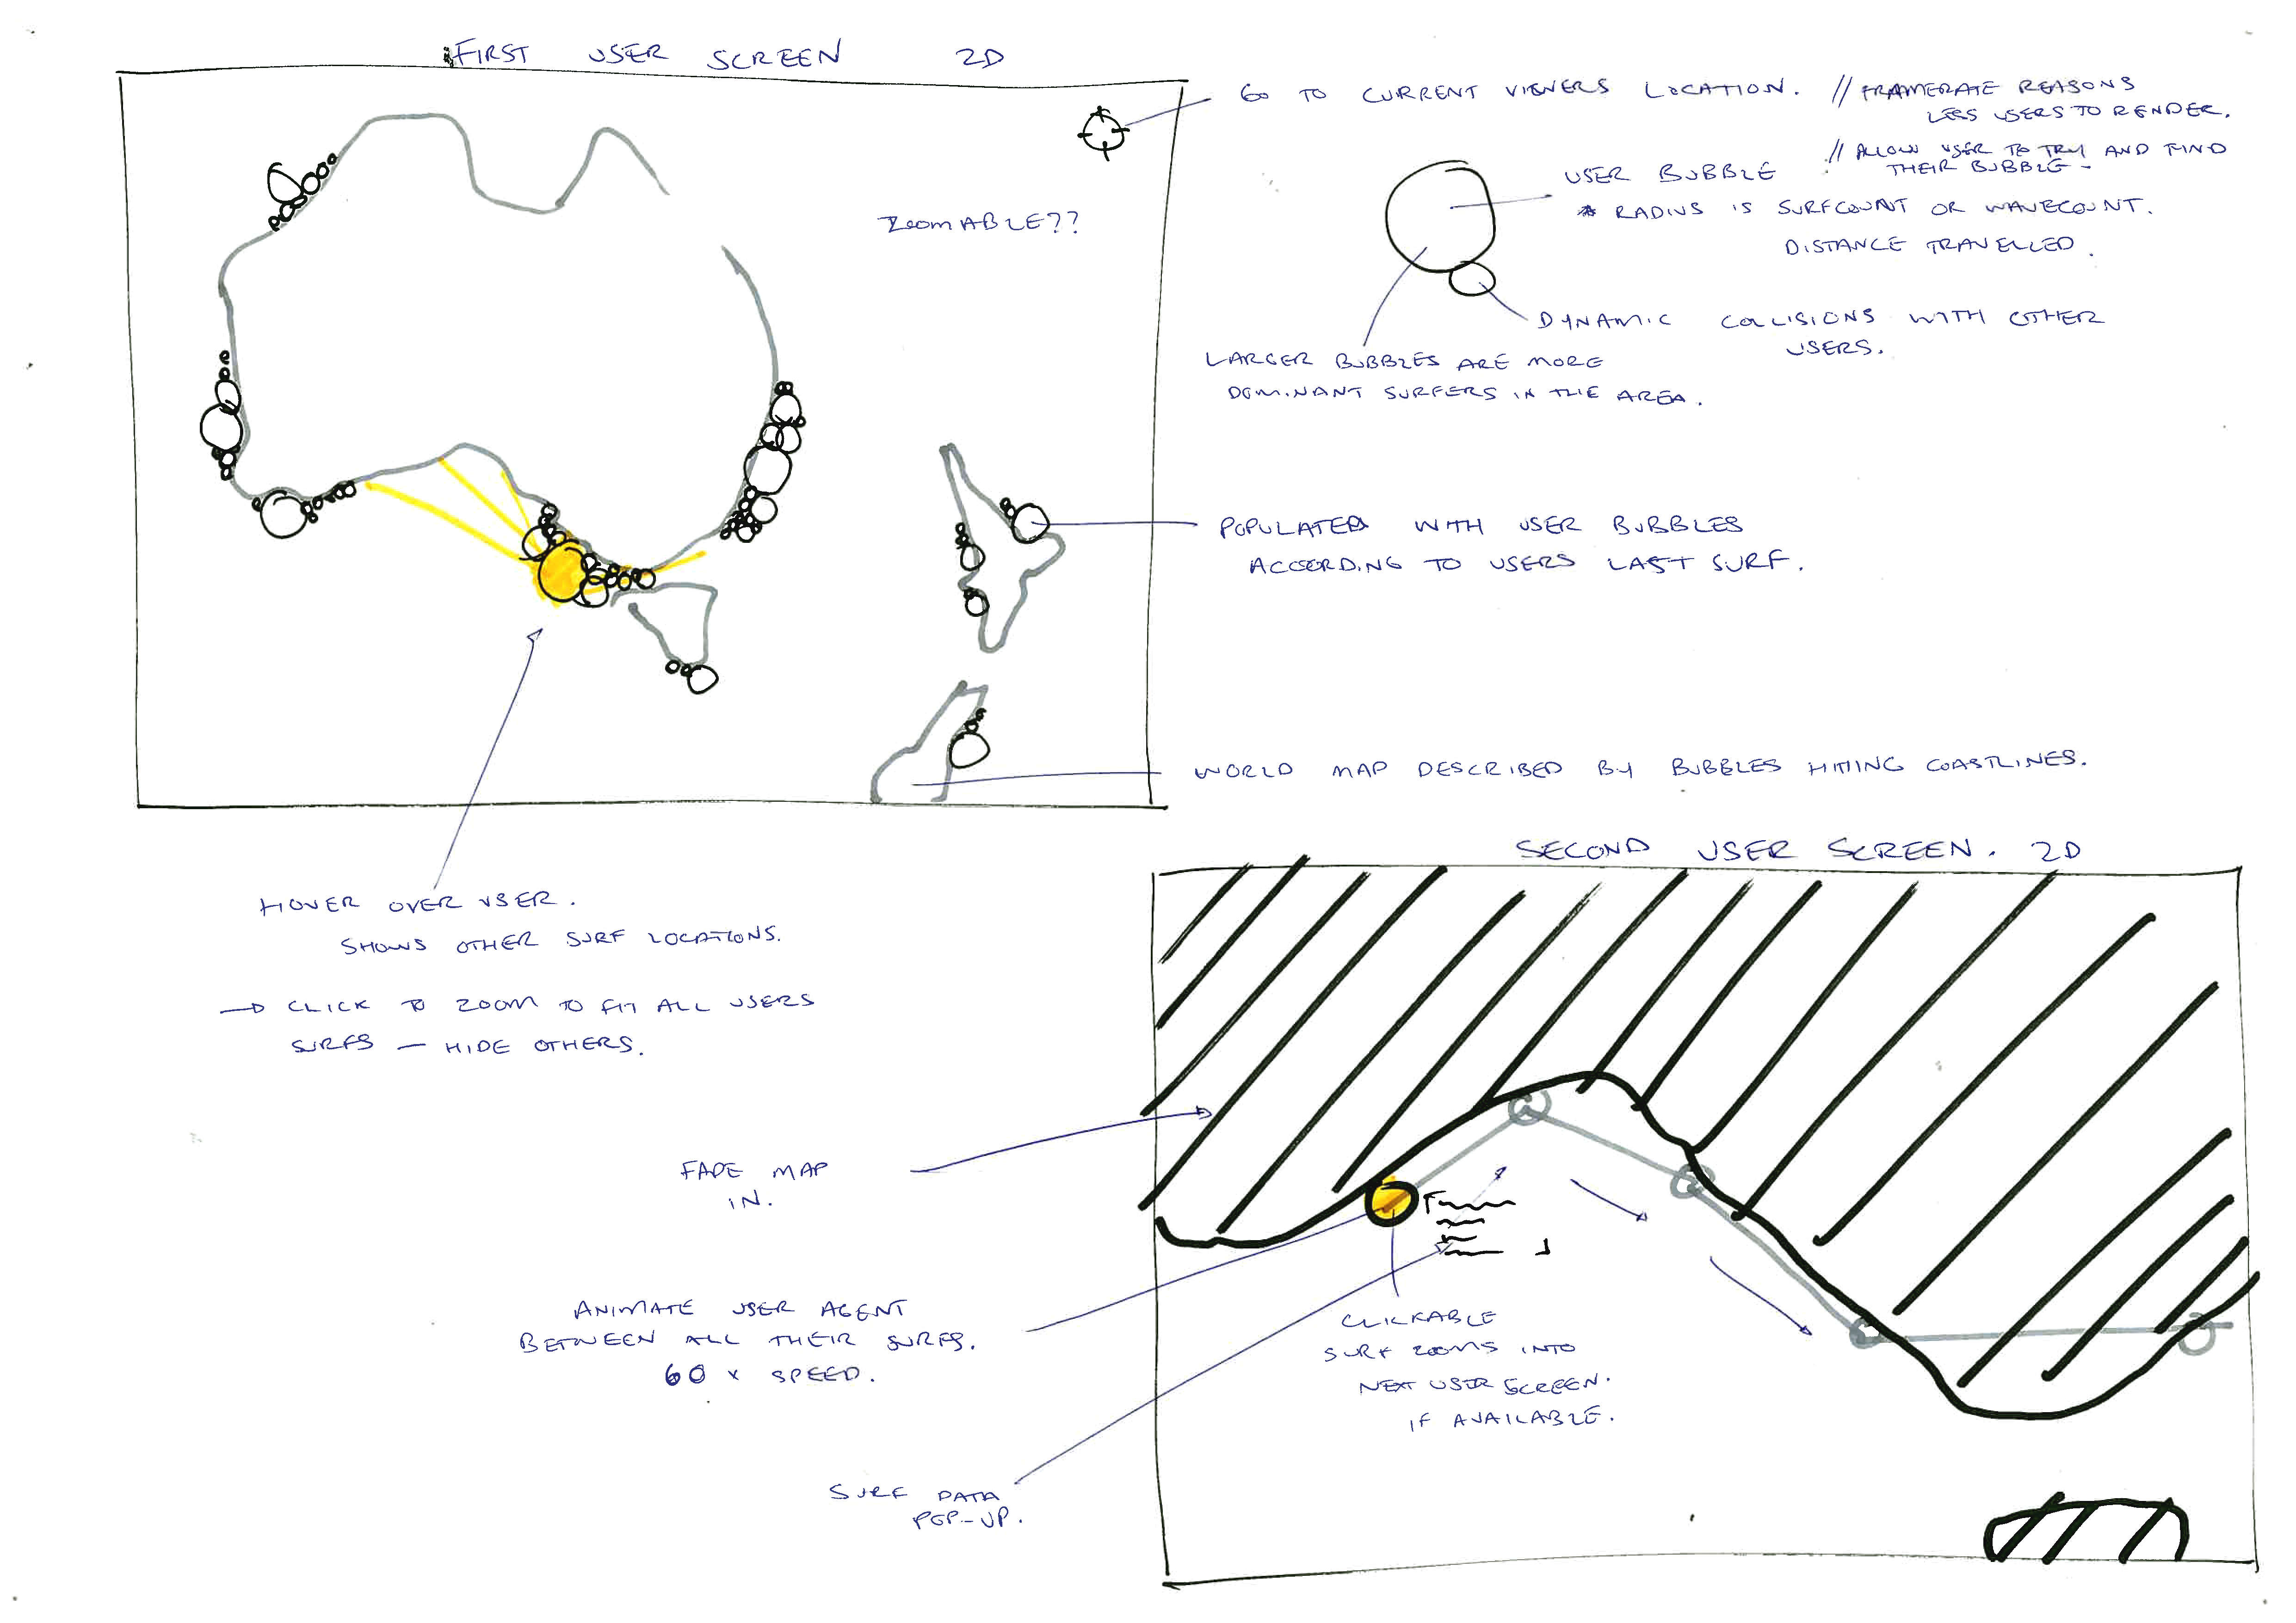 FIRST USER SCREEN 2D
GO TO CURRENT VIEWERS LOCATION. // FRAMERATE REASONS
LESS USERS TO RENDER.
// ALLOW USER TO TRY AND FIND
THEIR BUBBLE -
USER BUBBLE
* RADIUS IS SURFCOUNT OR WAVECOUNT.
DISTANCE TRAVELLED.
ZOOMABLE??
DYNAMIC COLLISIONS WITH OTHER
USERS.
LARGER BUBBLES ARE MORE
DOMINANT SURFERS IN THE AREA.
POPULATED WITH USER BUBBLES
ACCORDING TO USERS LAST SURF.
WORLD MAP DESCRIBED BY BUBBLES HITTING COASTLINES.
HOVER OVER USER.
SHOWS OTHER SURF LOCATIONS.
→ CLICK TO ZOOM TO FIT ALL USERS
SURFS — HIDE OTHERS.
SECOND USER SCREEN. 2D
FADE MAP
IN.
ANIMATE USER AGENT
BETWEEN ALL THEIR SURFS.
60 x SPEED.
CLICKABLE
SURF ZOOMS INTO
NEXT USER SCREEN.
IF AVAILABLE.
SURF DATA
POP-UP.